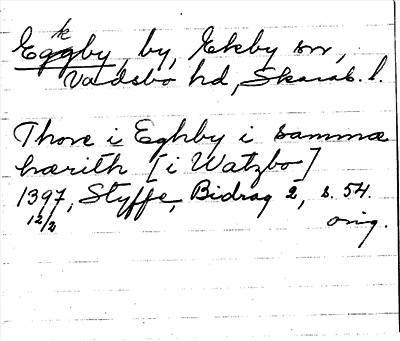 k
Eggby, by, Ekby sn,
Vadsbo hd, Skarab. l.
Thore i Eghby i samma
hærith [i Watzbo]
1397, Styffe, Bidrag 2, s. 54.
12/2 orig.